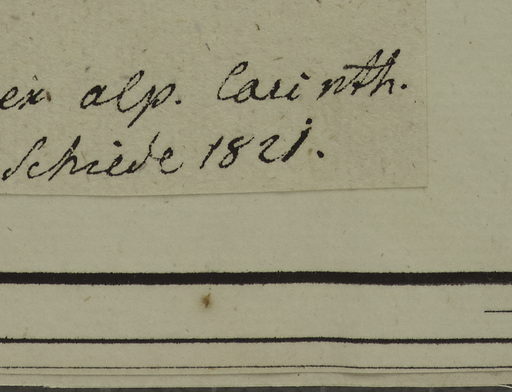 ex alp. Carinth.
Schiede 1821.